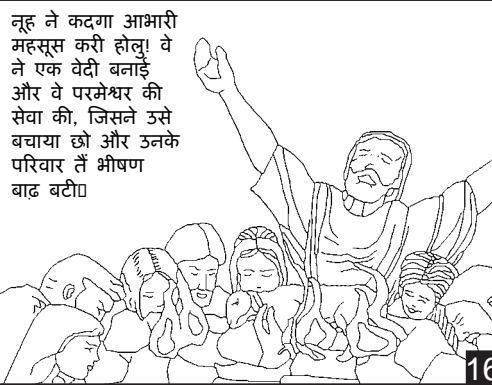 नूह ने कदगा आभारी
महसूस करी होलु! वे
ने एक वेदी बनाई
और वे परमेश्वर की
सेवा की, जिसने उसे
बचाया छो और उनके
परिवार तैं भीषण
बाढ़ बटी▯
16